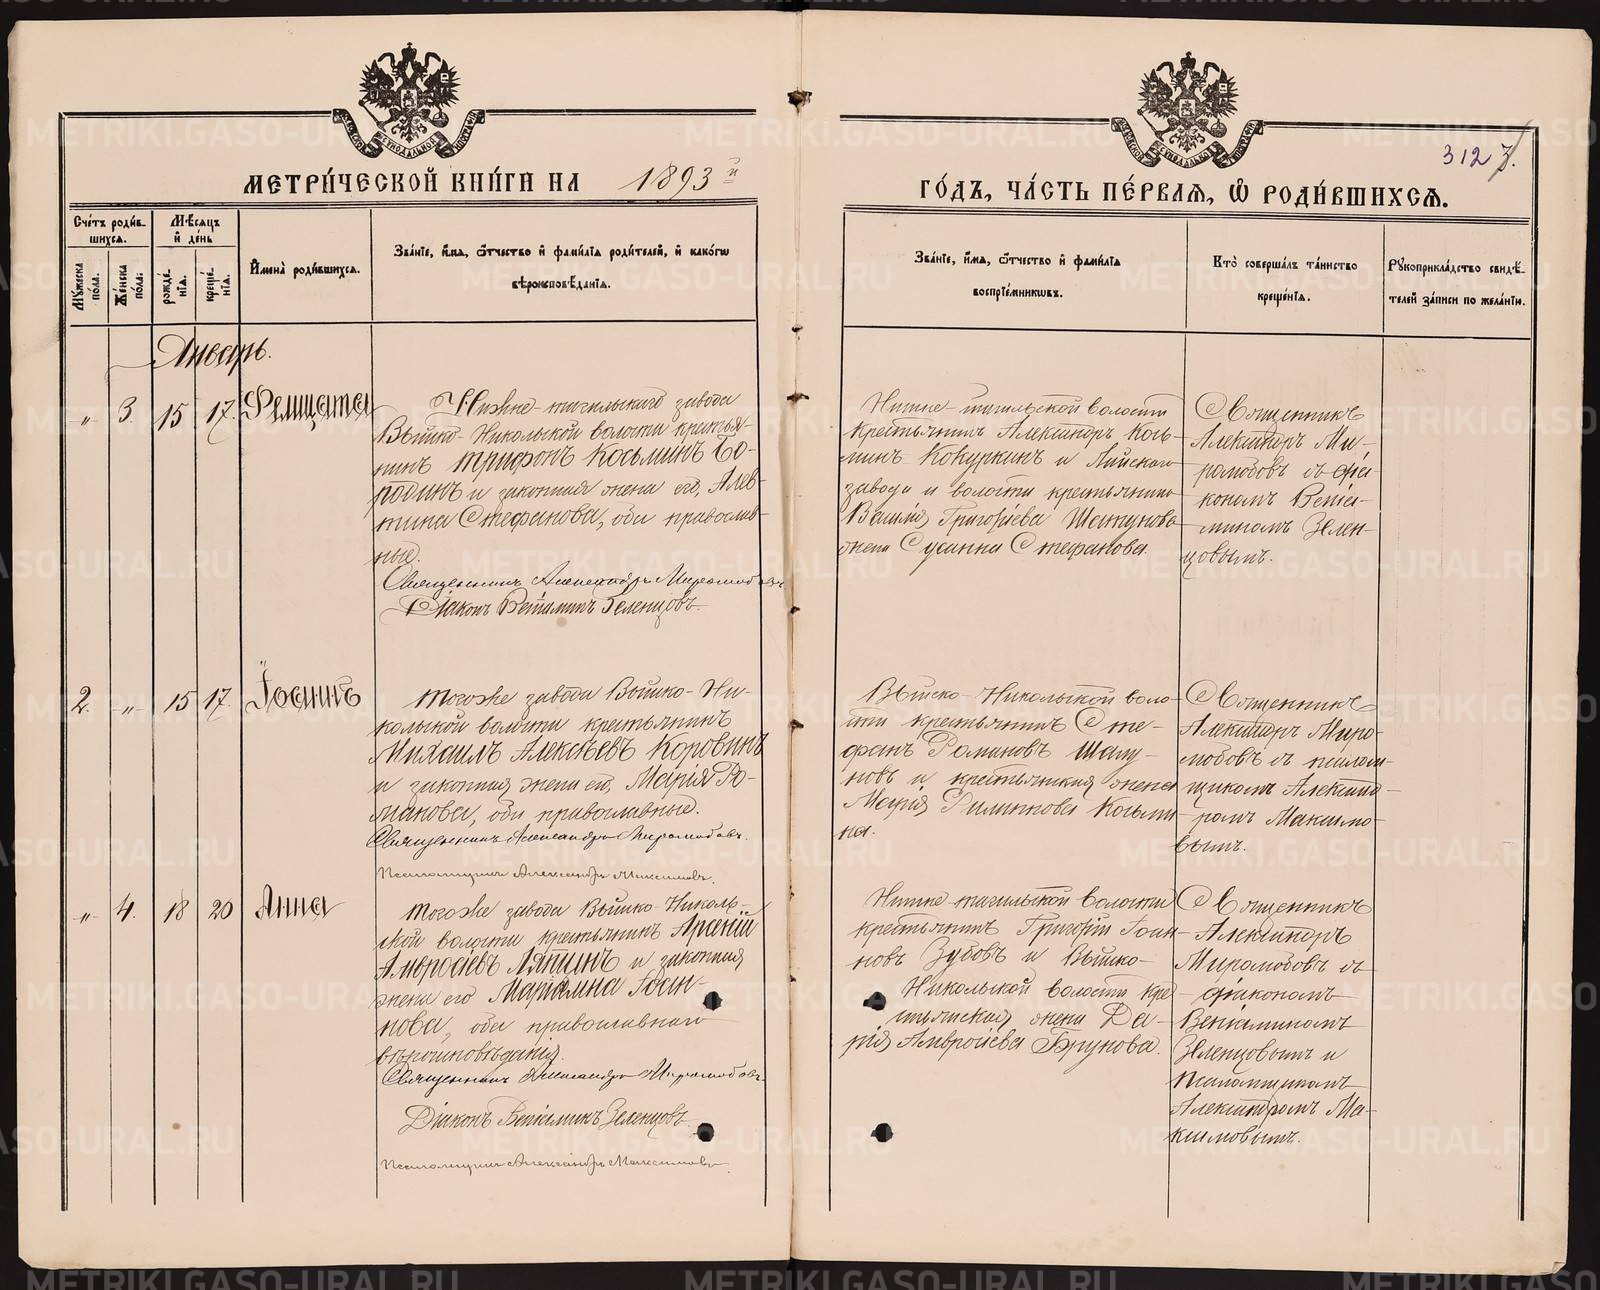 МЕТРИ́ЧЕСКОЙ КНИ́ГИ НА 1893й
ГО́ДЪ, ЧА́СТЬ ПЕ́РВАЯ, Ѿ РОДИ́ВШИХСЯ.
312
Сче́тъ роди́в-
шихся.
Мѣ́сяцъ
и҆ де́нь
Мꙋ́жеска
по́ла.
Же́нска
по́ла.
рожде́-
нїя.
креще́-
нїя.
И҆мена̀ роди́вшихся.
Зва́нїе, и҆́мя, ѻ҆́тчество и҆ фами́лїя роди́телей, и҆ како́гѡ
вѣроисповѣ́данїя.
Зва́нїе, и҆́мя, ѻ҆́тчество и҆ фами́лїя
воспрїе́мниковъ.
Кто̀ соверша́лъ та́инство
креще́нїя.
Рꙋкоприкла́дство свидѣ́-
телей за́писи по жела́нїи.
Январь.
" 3. 15 17. Фелицата
Нижне-тагильскаго завода
Выйско-Никольской волости крестья-
нинъ Трифонъ Косьминъ Бо-
родинъ и законная жена его, Алев-
тина Стефанова, оба православ-
ные.
Священникъ Александръ Миролюбовъ
Діаконъ Веніаминъ Зеленцовъ
Нижне-тагильской волости
крестьянинъ Александръ Кось-
минъ Кокуркинъ и Лайскаго
завода и волости крестьянина
Василія Григоріева Шапунова
жена Сусанна Стефанова.
Священникъ
Александръ Ми-
ролюбовъ съ діа-
кономъ Веніа-
миномъ Зелен-
цовымъ.
2. " 15 17. Іоаннъ
Тогоже завода Выйско-Ни-
кольской волости крестьянинъ
Михаилъ Алексѣевъ Коровинъ
и законная жена его, Марія Ро-
манова, оба православные.
Священникъ Александръ Миролюбовъ.
Псаломщикъ Александръ Максимовъ.
Выйско-Никольской воло-
сти крестьянинъ Сте-
фанъ Романовъ Шапу-
новъ и крестьянская жена
Марія Филиппова Косьми-
на.
Священникъ
Александръ Миро-
любовъ съ псалом-
щикомъ Александ-
ромъ Максимо-
вымъ.
" 4. 18 20 Анна
Тогоже завода Выйско-Николь-
ской волости крестьянинъ Арсеній
Амвросіевъ Ляпинъ и законная
жена его Маріамна Іоан-
нова, оба православнаго
вѣроисповѣданія.
Священникъ Александръ Миролюбовъ.
Діаконъ Веніаминъ Зеленцовъ
Псаломщикъ Александръ Максимовъ.
Нижне-тагильской волости
крестьянинъ Григорій Іоан-
новъ Зубовъ и Выйско-
Никольской волости кре-
стьянская жена Да-
рія Амвросіева Брукова.
Священникъ
Александръ
Миролюбовъ съ
діакономъ
Веніаминомъ
Зеленцовымъ и
псаломщикомъ
Александромъ Ма-
ксимовымъ.
METRIKI.GASO-URAL.RU